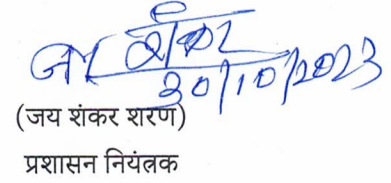 जय शंकर
30/10/2023
(जय शंकर शरण)
प्रशासन नियंत्रक